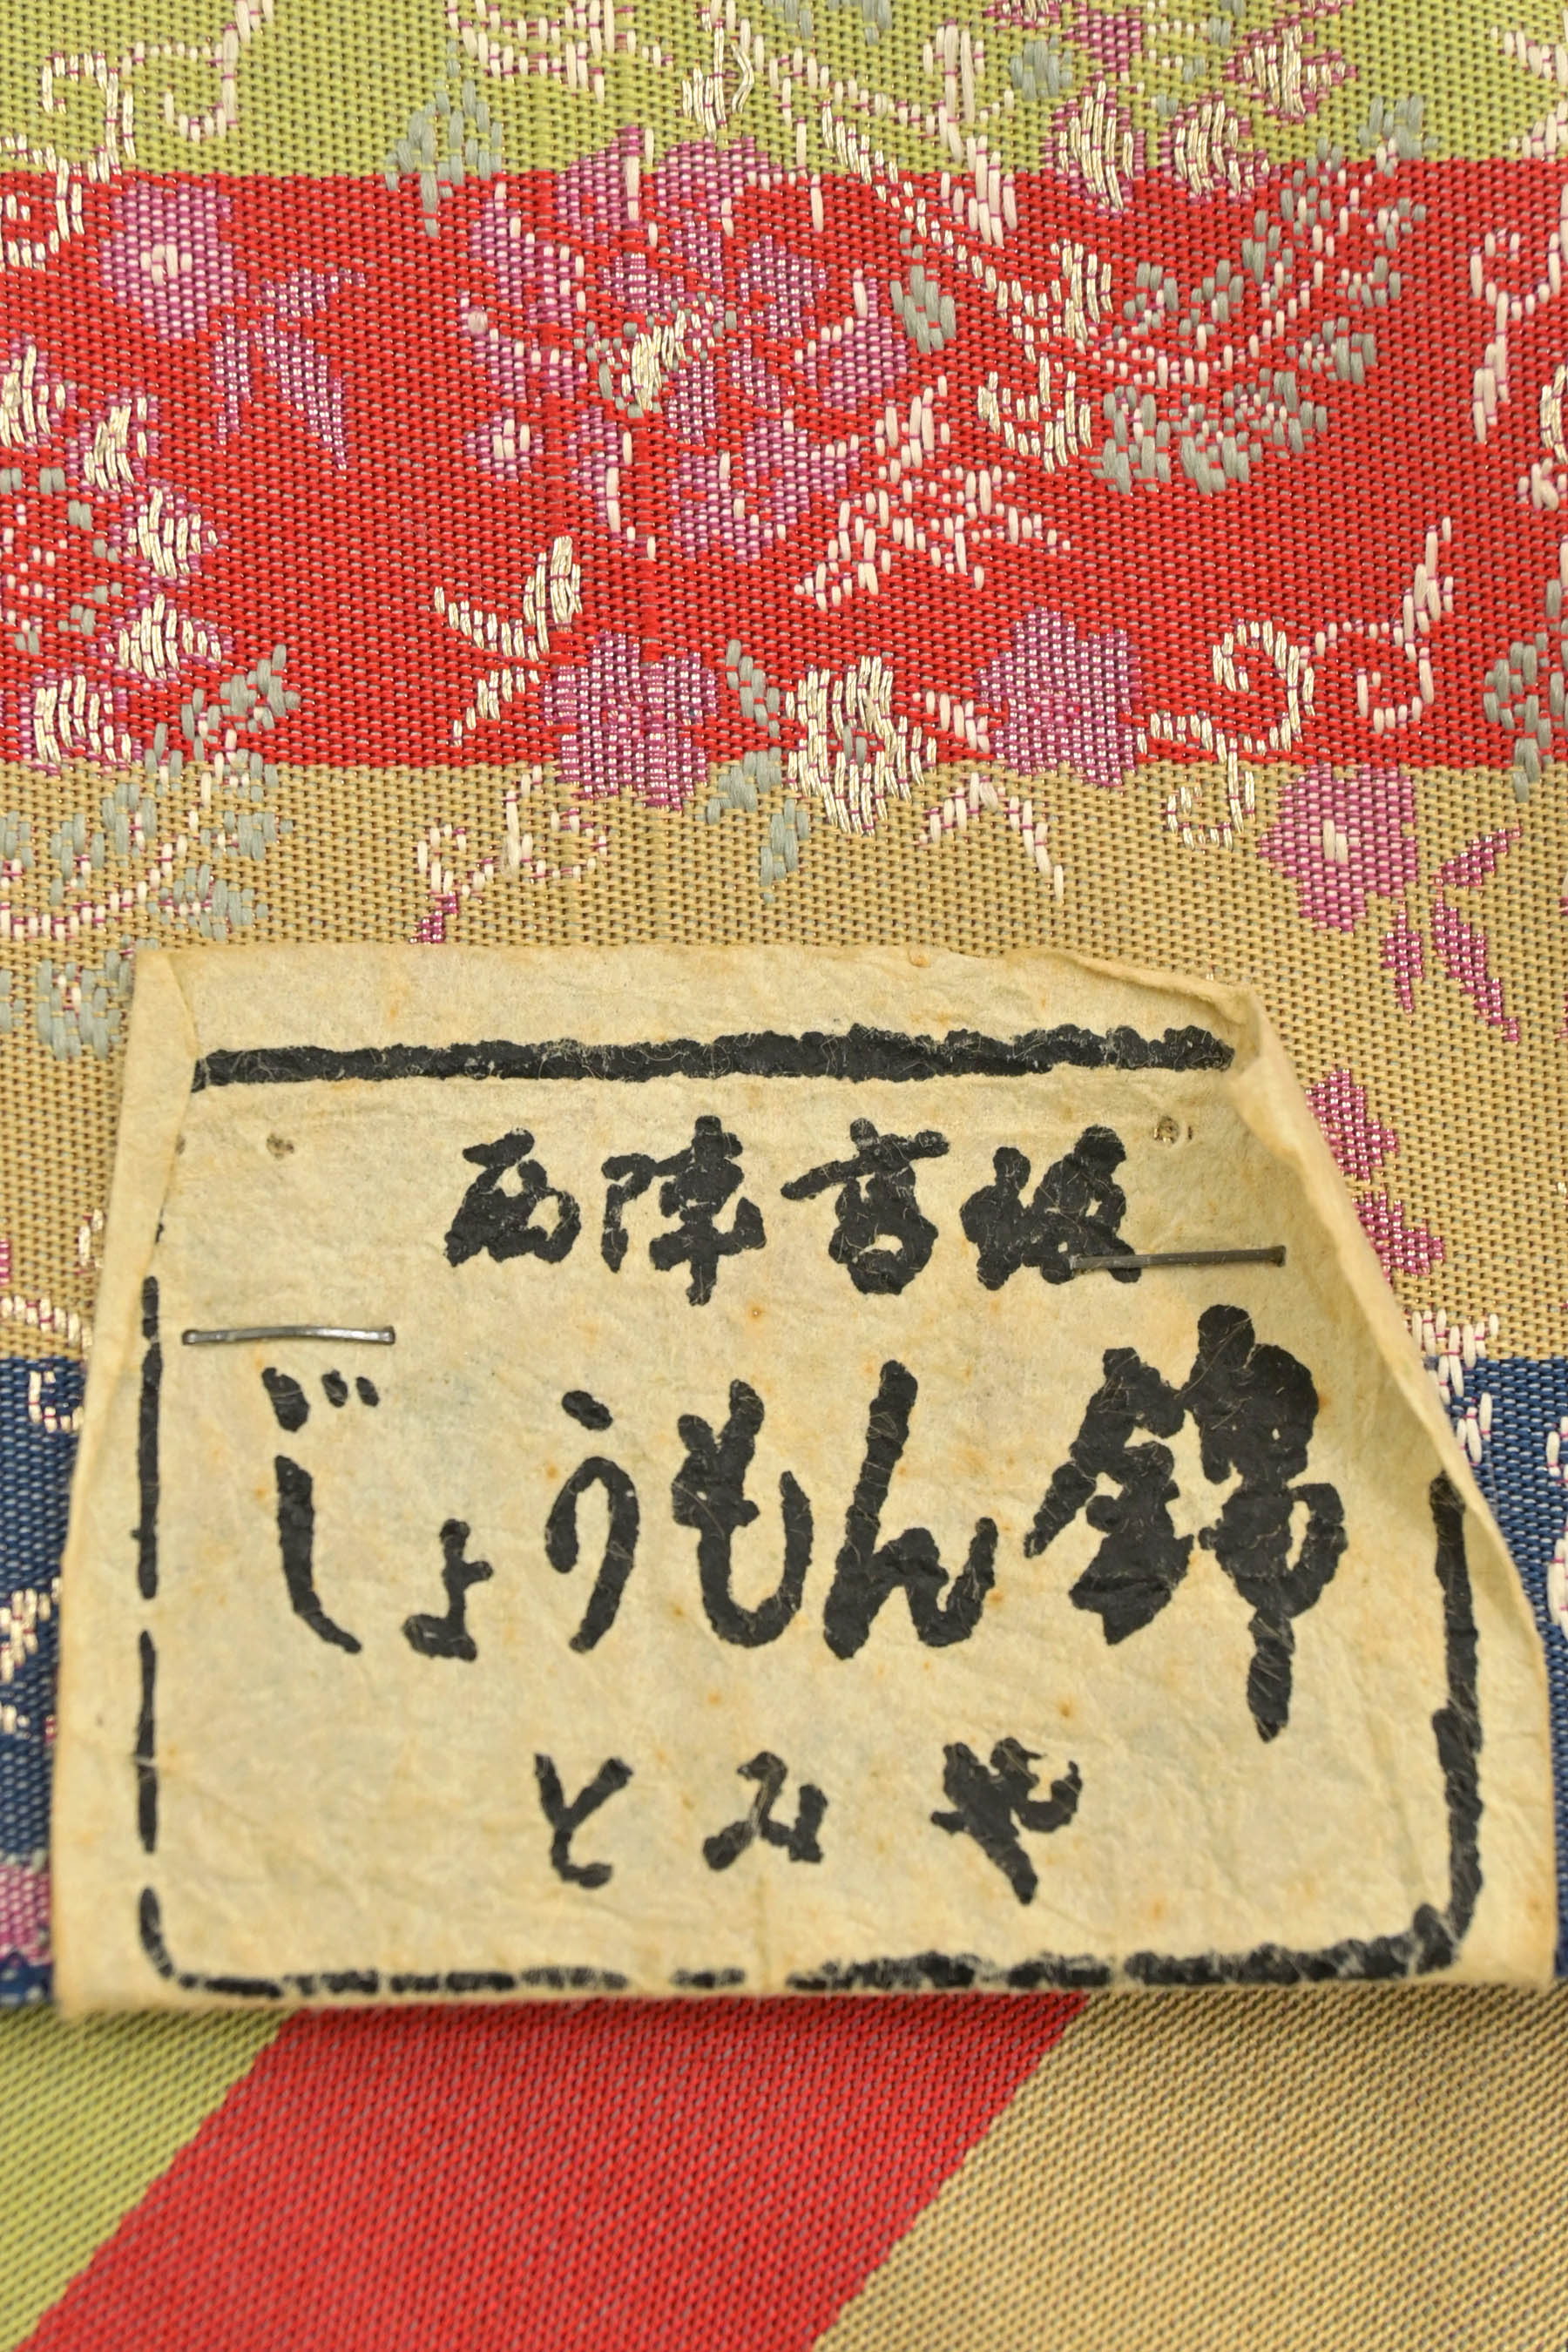 西陣高级
じょうもん錦
とみや